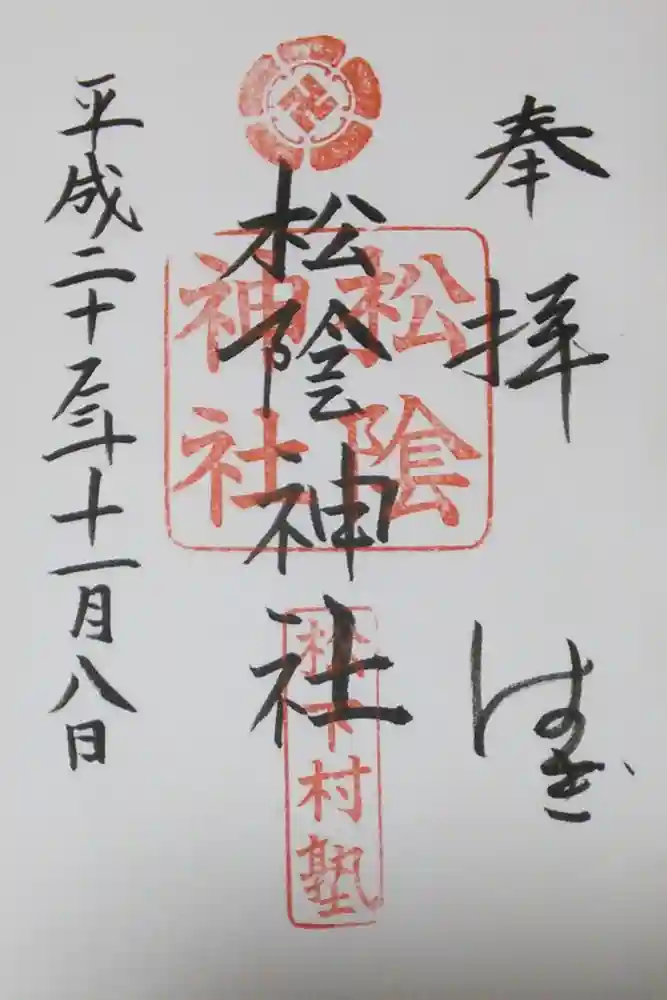 奉拝
はぎ
松陰神社
松陰
神社
松下村塾
平成二十五年十一月八日